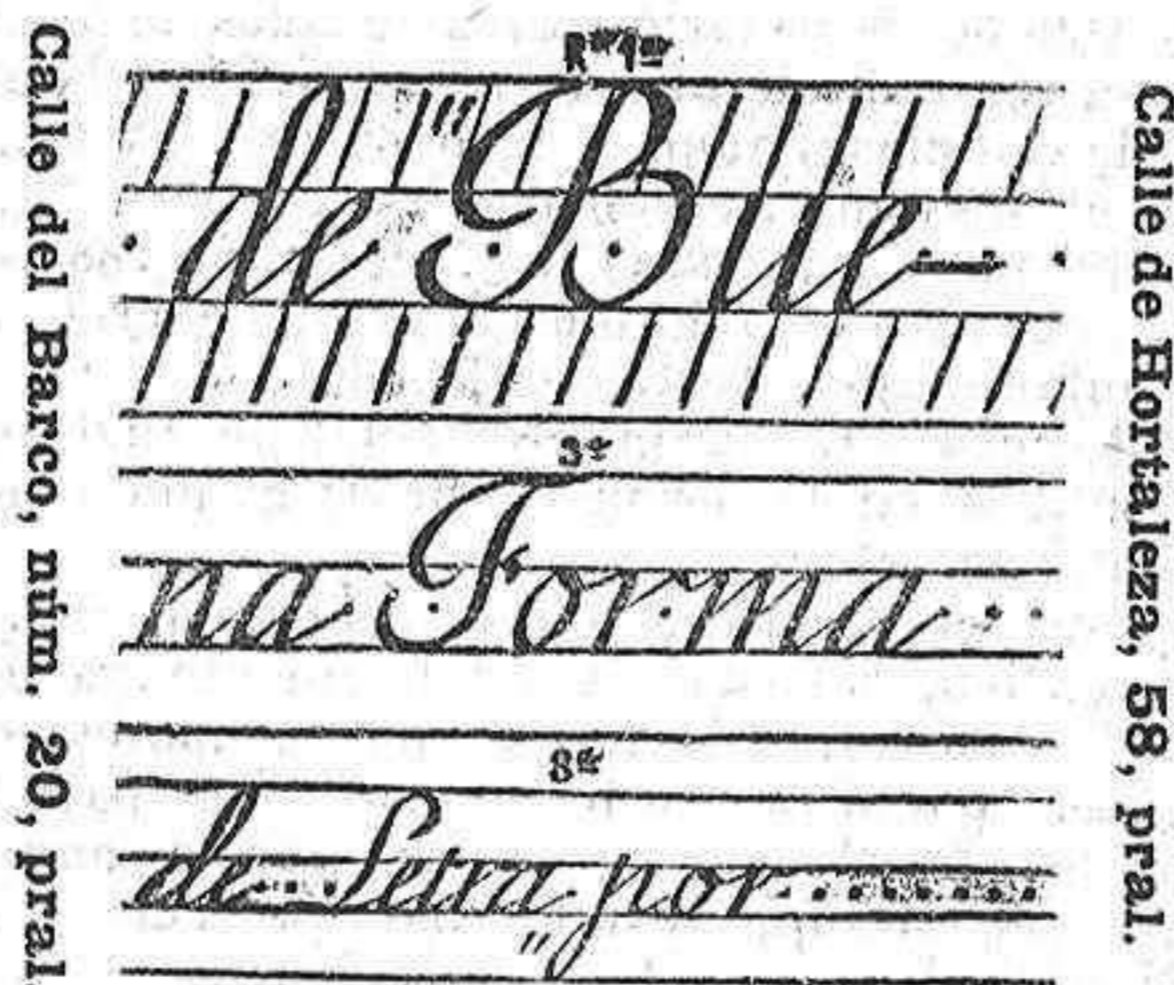 Calle del Barco, núm. 20, pral.
de Bue-
3ª
na Forma
8ª
de Letra por
Calle de Hortaleza, 58, pral.